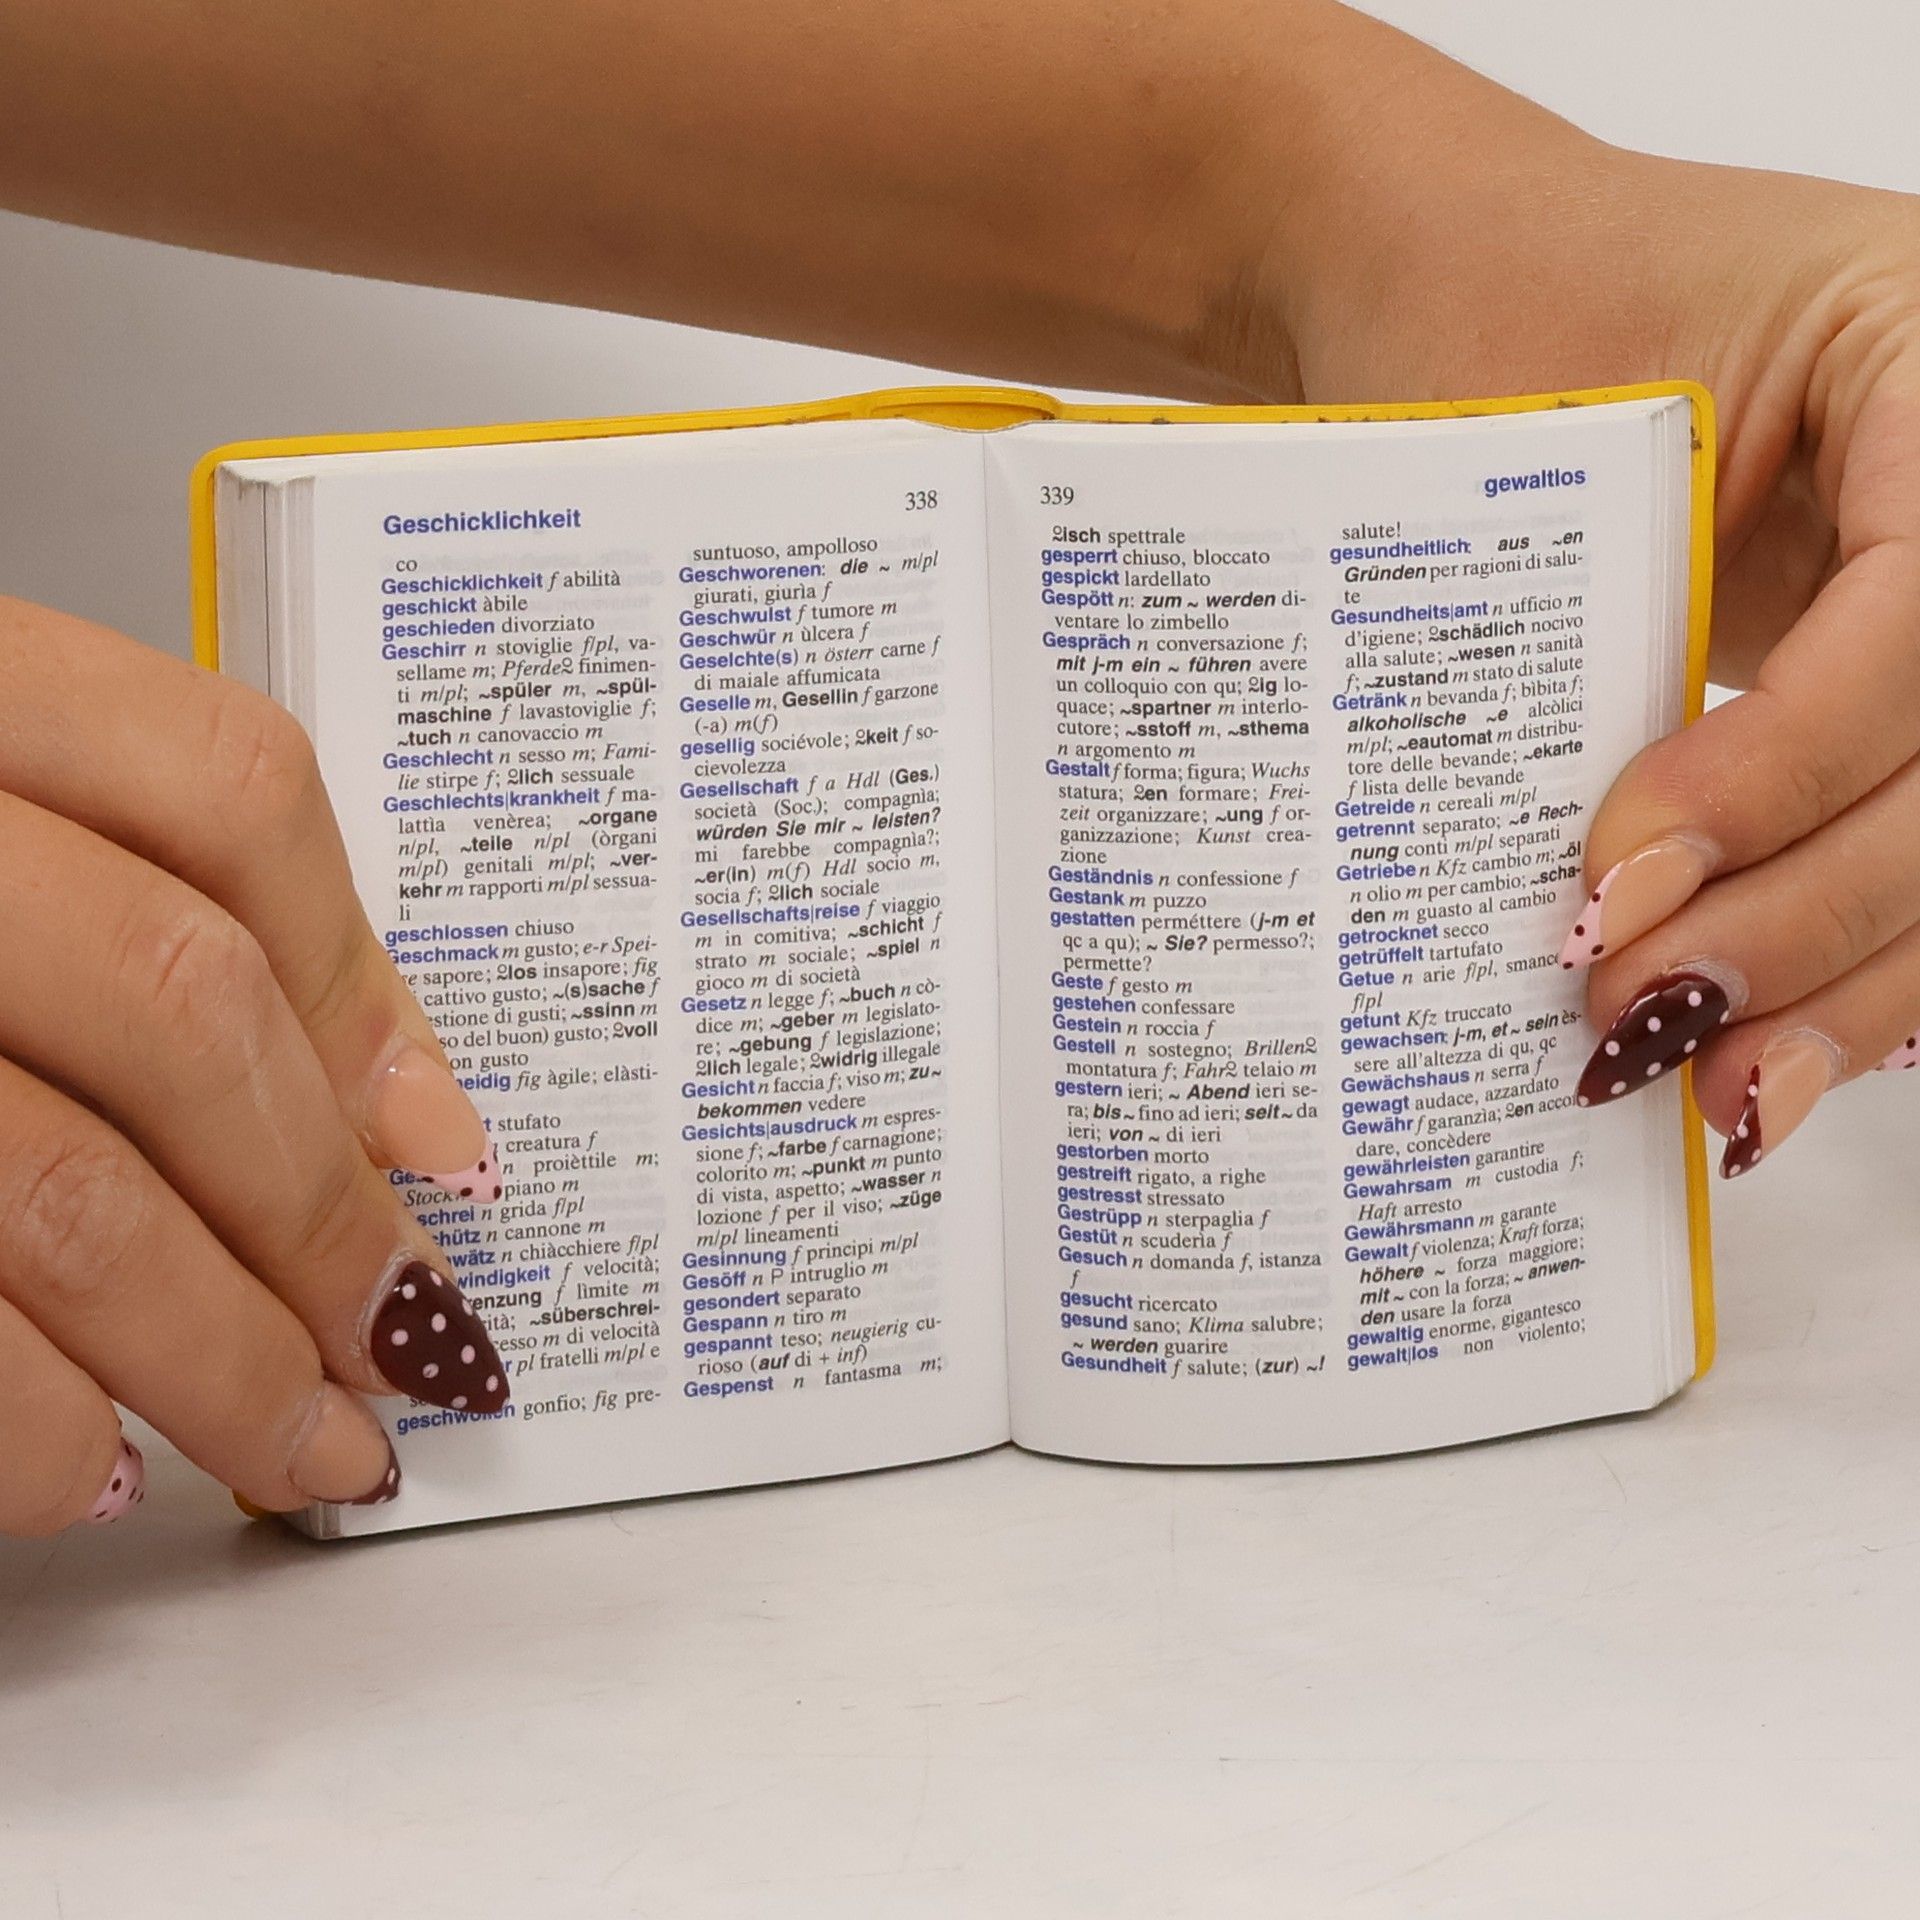 Geschicklichkeit
338
co
Geschicklichkeit f abilità
geschickt àbile
geschieden divorziato
Geschirr n stoviglie f/pl, va-
sellame m; Pferde♀ finimen-
ti m/pl; ~spüler m, ~spül-
maschine f lavastoviglie f;
~tuch n canovaccio m
Geschlecht n sesso m; Fami-
lie stirpe f; ♀lich sessuale
Geschlechts|krankheit f ma-
lattìa venèrea; ~organe
n/pl, ~teile n/pl (òrgani
m/pl) genitali m/pl; ~ver-
kehr m rapporti m/pl sessua-
li
geschlossen chiuso
Geschmack m gusto; e-r Spei-
se sapore; ♀los insapore; fig
cattivo gusto; ~(s)sache f
stione di gusti; ~ssinn m
so del buon) gusto; ♀voll
on gusto
eidig fig àgile; elàsti-
t stufato
creatura f
n proièttile m;
Stock piano m
schrei n grida f/pl
hütz n cannone m
wätz n chiàcchiere f/pl
windigkeit f velocità;
enzung f lìmite m
ità; ~süberschrei-
cesso m di velocità
r pl fratelli m/pl e
geschwollen gonfio; fig pre-
suntuoso, ampolloso
Geschworenen: die ~ m/pl
giurati, giurìa f
Geschwulst f tumore m
Geschwür n ùlcera f
Geselchte(s) n österr carne f
di maiale affumicata
Geselle m, Gesellin f garzone
(-a) m(f)
gesellig sociévole; ♀keit f so-
cievolezza
Gesellschaft f a Hdl (Ges.)
società (Soc.); compagnìa;
würden Sie mir ~ leisten?
mi farebbe compagnìa?;
~er(in) m(f) Hdl socio m,
socia f; ♀lich sociale
Gesellschafts|reise f viaggio
m in comitiva; ~schicht f
strato m sociale; ~spiel n
gioco m di società
Gesetz n legge f; ~buch n cò-
dice m; ~geber m legislato-
re; ~gebung f legislazione;
♀lich legale; ♀widrig illegale
Gesicht n faccia f; viso m; zu ~
bekommen vedere
Gesichts|ausdruck m espres-
sione f; ~farbe f carnagione;
colorito m; ~punkt m punto
di vista, aspetto; ~wasser n
lozione f per il viso; ~züge
m/pl lineamenti
Gesinnung f princìpi m/pl
Gesöff n P intruglio m
gesondert separato
Gespann n tiro m
gespannt teso; neugierig cu-
rioso (auf di + inf)
Gespenst n fantasma m;
339
gewaltlos
♀isch spettrale
gesperrt chiuso, bloccato
gespickt lardellato
Gespött n: zum ~ werden di-
ventare lo zimbello
Gespräch n conversazione f;
mit j-m ein ~ führen avere
un colloquio con qu; ♀ig lo-
quace; ~spartner m interlo-
cutore; ~sstoff m, ~sthema
n argomento m
Gestalt f forma; figura; Wuchs
statura; ♀en formare; Frei-
zeit organizzare; ~ung f or-
ganizzazione; Kunst crea-
zione
Geständnis n confessione f
Gestank m puzzo
gestatten perméttere (j-m et
qc a qu); ~ Sie? permesso?;
permette?
Geste f gesto m
gestehen confessare
Gestein n roccia f
Gestell n sostegno; Brillen♀
montatura f; Fahr♀ telaio m
gestern ieri; ~ Abend ieri se-
ra; bis ~ fino ad ieri; seit ~ da
ieri; von ~ di ieri
gestorben morto
gestreift rigato, a righe
gestresst stressato
Gestrüpp n sterpaglia f
Gestüt n scuderìa f
Gesuch n domanda f, istanza
f
gesucht ricercato
gesund sano; Klima salubre;
~ werden guarire
Gesundheit f salute; (zur) ~!
salute!
gesundheitlich: aus ~en
Gründen per ragioni di salu-
te
Gesundheits|amt n ufficio m
d'igiene; ♀schädlich nocivo
alla salute; ~wesen n sanità
f; ~zustand m stato di salute
Getränk n bevanda f; bìbita f;
alkoholische ~e alcòlici
m/pl; ~eautomat m distribu-
tore delle bevande; ~ekarte
f lista delle bevande
Getreide n cereali m/pl
getrennt separato; ~e Rech-
nung conti m/pl separati
Getriebe n Kfz cambio m; ~öl
n olio m per cambio; ~scha-
den m guasto al cambio
getrocknet secco
getrüffelt tartufato
Getue n arie f/pl, smance
f/pl
getunt Kfz truccato
gewachsen: j-m, et ~ sein ès-
sere all'altezza di qu, qc
Gewächshaus n serra f
gewagt audace, azzardato
Gewähr f garanzìa; ♀en accor
dare, concèdere
gewährleisten garantire
Gewahrsam m custodia f;
Haft arresto
Gewährsmann m garante
Gewalt f violenza; Kraft forza;
höhere ~ forza maggiore;
mit ~ con la forza; ~ anwen-
den usare la forza
gewaltig enorme, gigantesco
gewalt|los non violento;